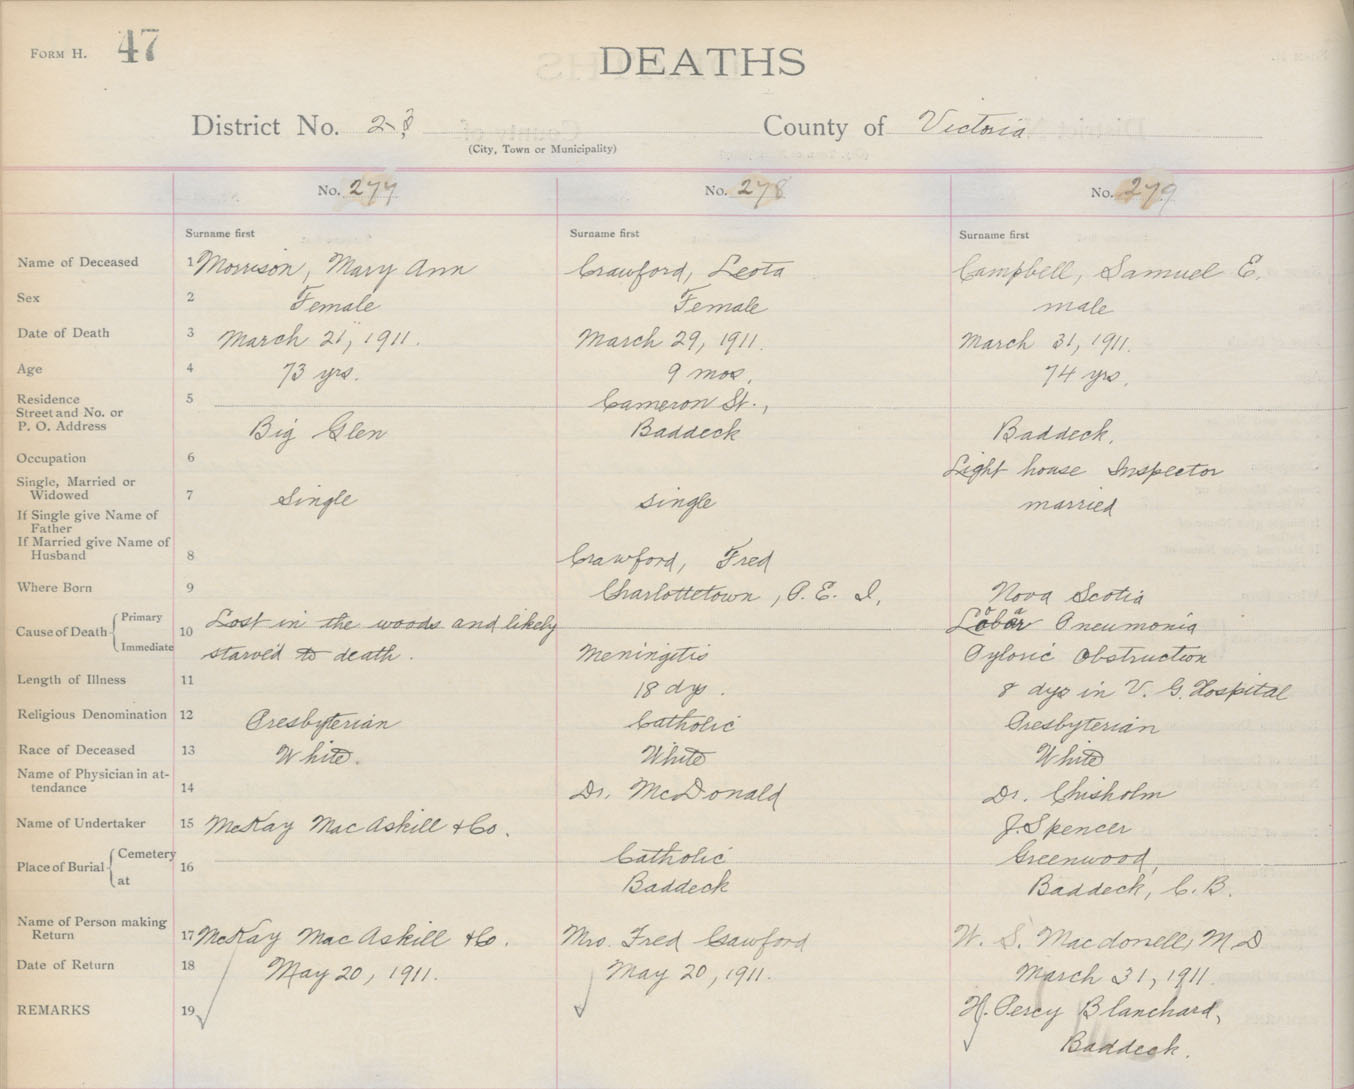 FORM H. 47
DEATHS
District No. 28 County of Victoria
(City, Town or Municipality)
No. 277 No. 278 No. 279
Surname first Surname first Surname first
Name of Deceased 1 Morrison, Mary Ann Crawford, Leota Campbell, Samuel E.
Sex 2 Female Female male
Date of Death 3 March 21, 1911. March 29, 1911. March 31, 1911.
Age 4 73 yrs. 9 mos. 74 yrs.
Residence 5 Cameron St.,
Street and No. or
P. O. Address Big Glen Baddeck Baddeck.
Occupation 6 Light house Inspector
Single, Married or
Widowed 7 Single single married
If Single give Name of
Father
If Married give Name of
Husband 8 Crawford, Fred
Where Born 9 Charlottetown, P. E. I. Nova Scotia
Cause of Death Primary 10 Lost in the woods and likely Lobar Pneumonia
Immediate starved to death. Meningitis Pyloric Obstruction
Length of Illness 11 18 dys. 8 dys in V. G. Hospital
Religious Denomination 12 Presbyterian Catholic Presbyterian
Race of Deceased 13 White. White White
Name of Physician in at-
tendance 14 Dr. McDonald Dr. Chisholm
Name of Undertaker 15 McKay MacAskill & Co. J. Spencer
Place of Burial Cemetery 16 Catholic Greenwood,
at Baddeck Baddeck, C. B.
Name of Person making
Return 17 McKay MacAskill & Co. Mrs. Fred Cawford W. S. Macdonell, M D
Date of Return 18 May 20, 1911. May 20, 1911. March 31, 1911.
REMARKS 19 H. Percy Blanchard,
Baddeck.